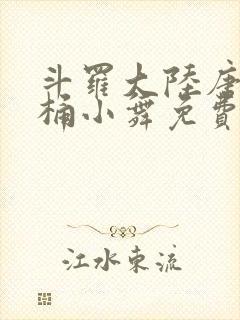 斗羅大陸唐
桶小舞免費
江水東流